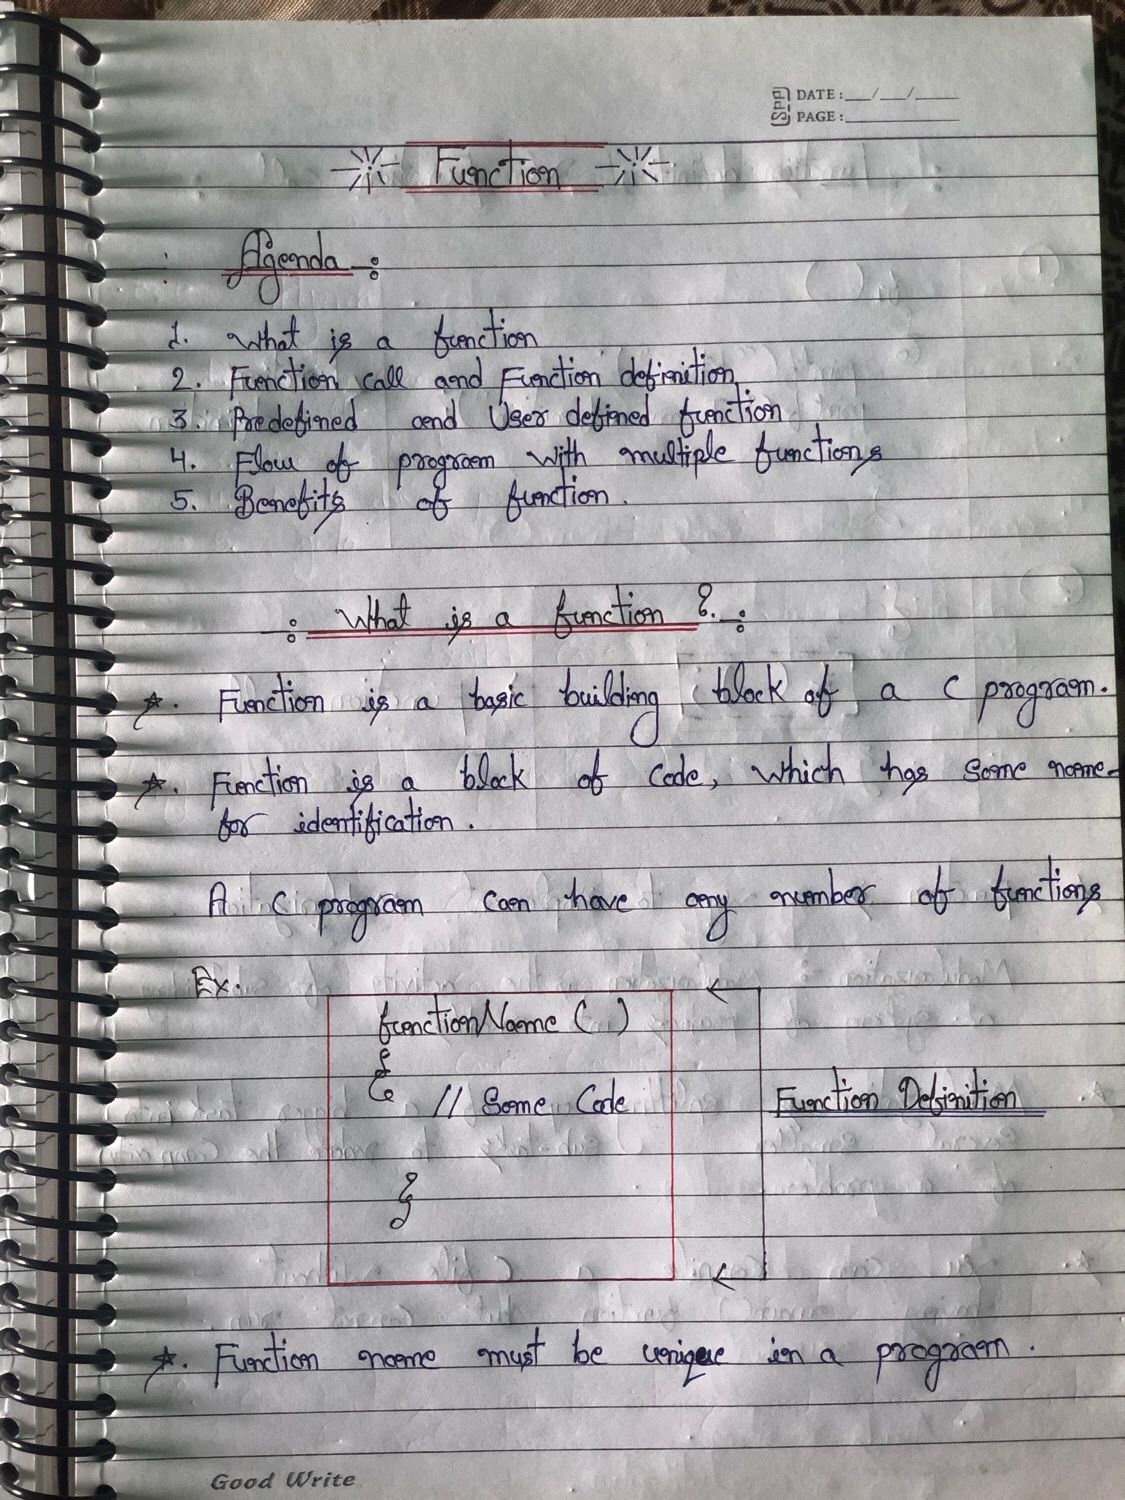 SPP DATE:__/__/____
PAGE:__________
Function
Agenda -:
1. What is a function
2. Function call and Function definition
3. Predefined and User defined function
4. Flow of program with multiple functions
5. Benefits of function.
-: What is a function ? -:
*. Function is a basic building block of a C program.
*. Function is a block of code, which has some name
for identification.
A C program can have any number of functions
Ex.
functionName ( )
{
// Some Code
Function Definition
}
*. Function name must be unique in a program.
Good Write